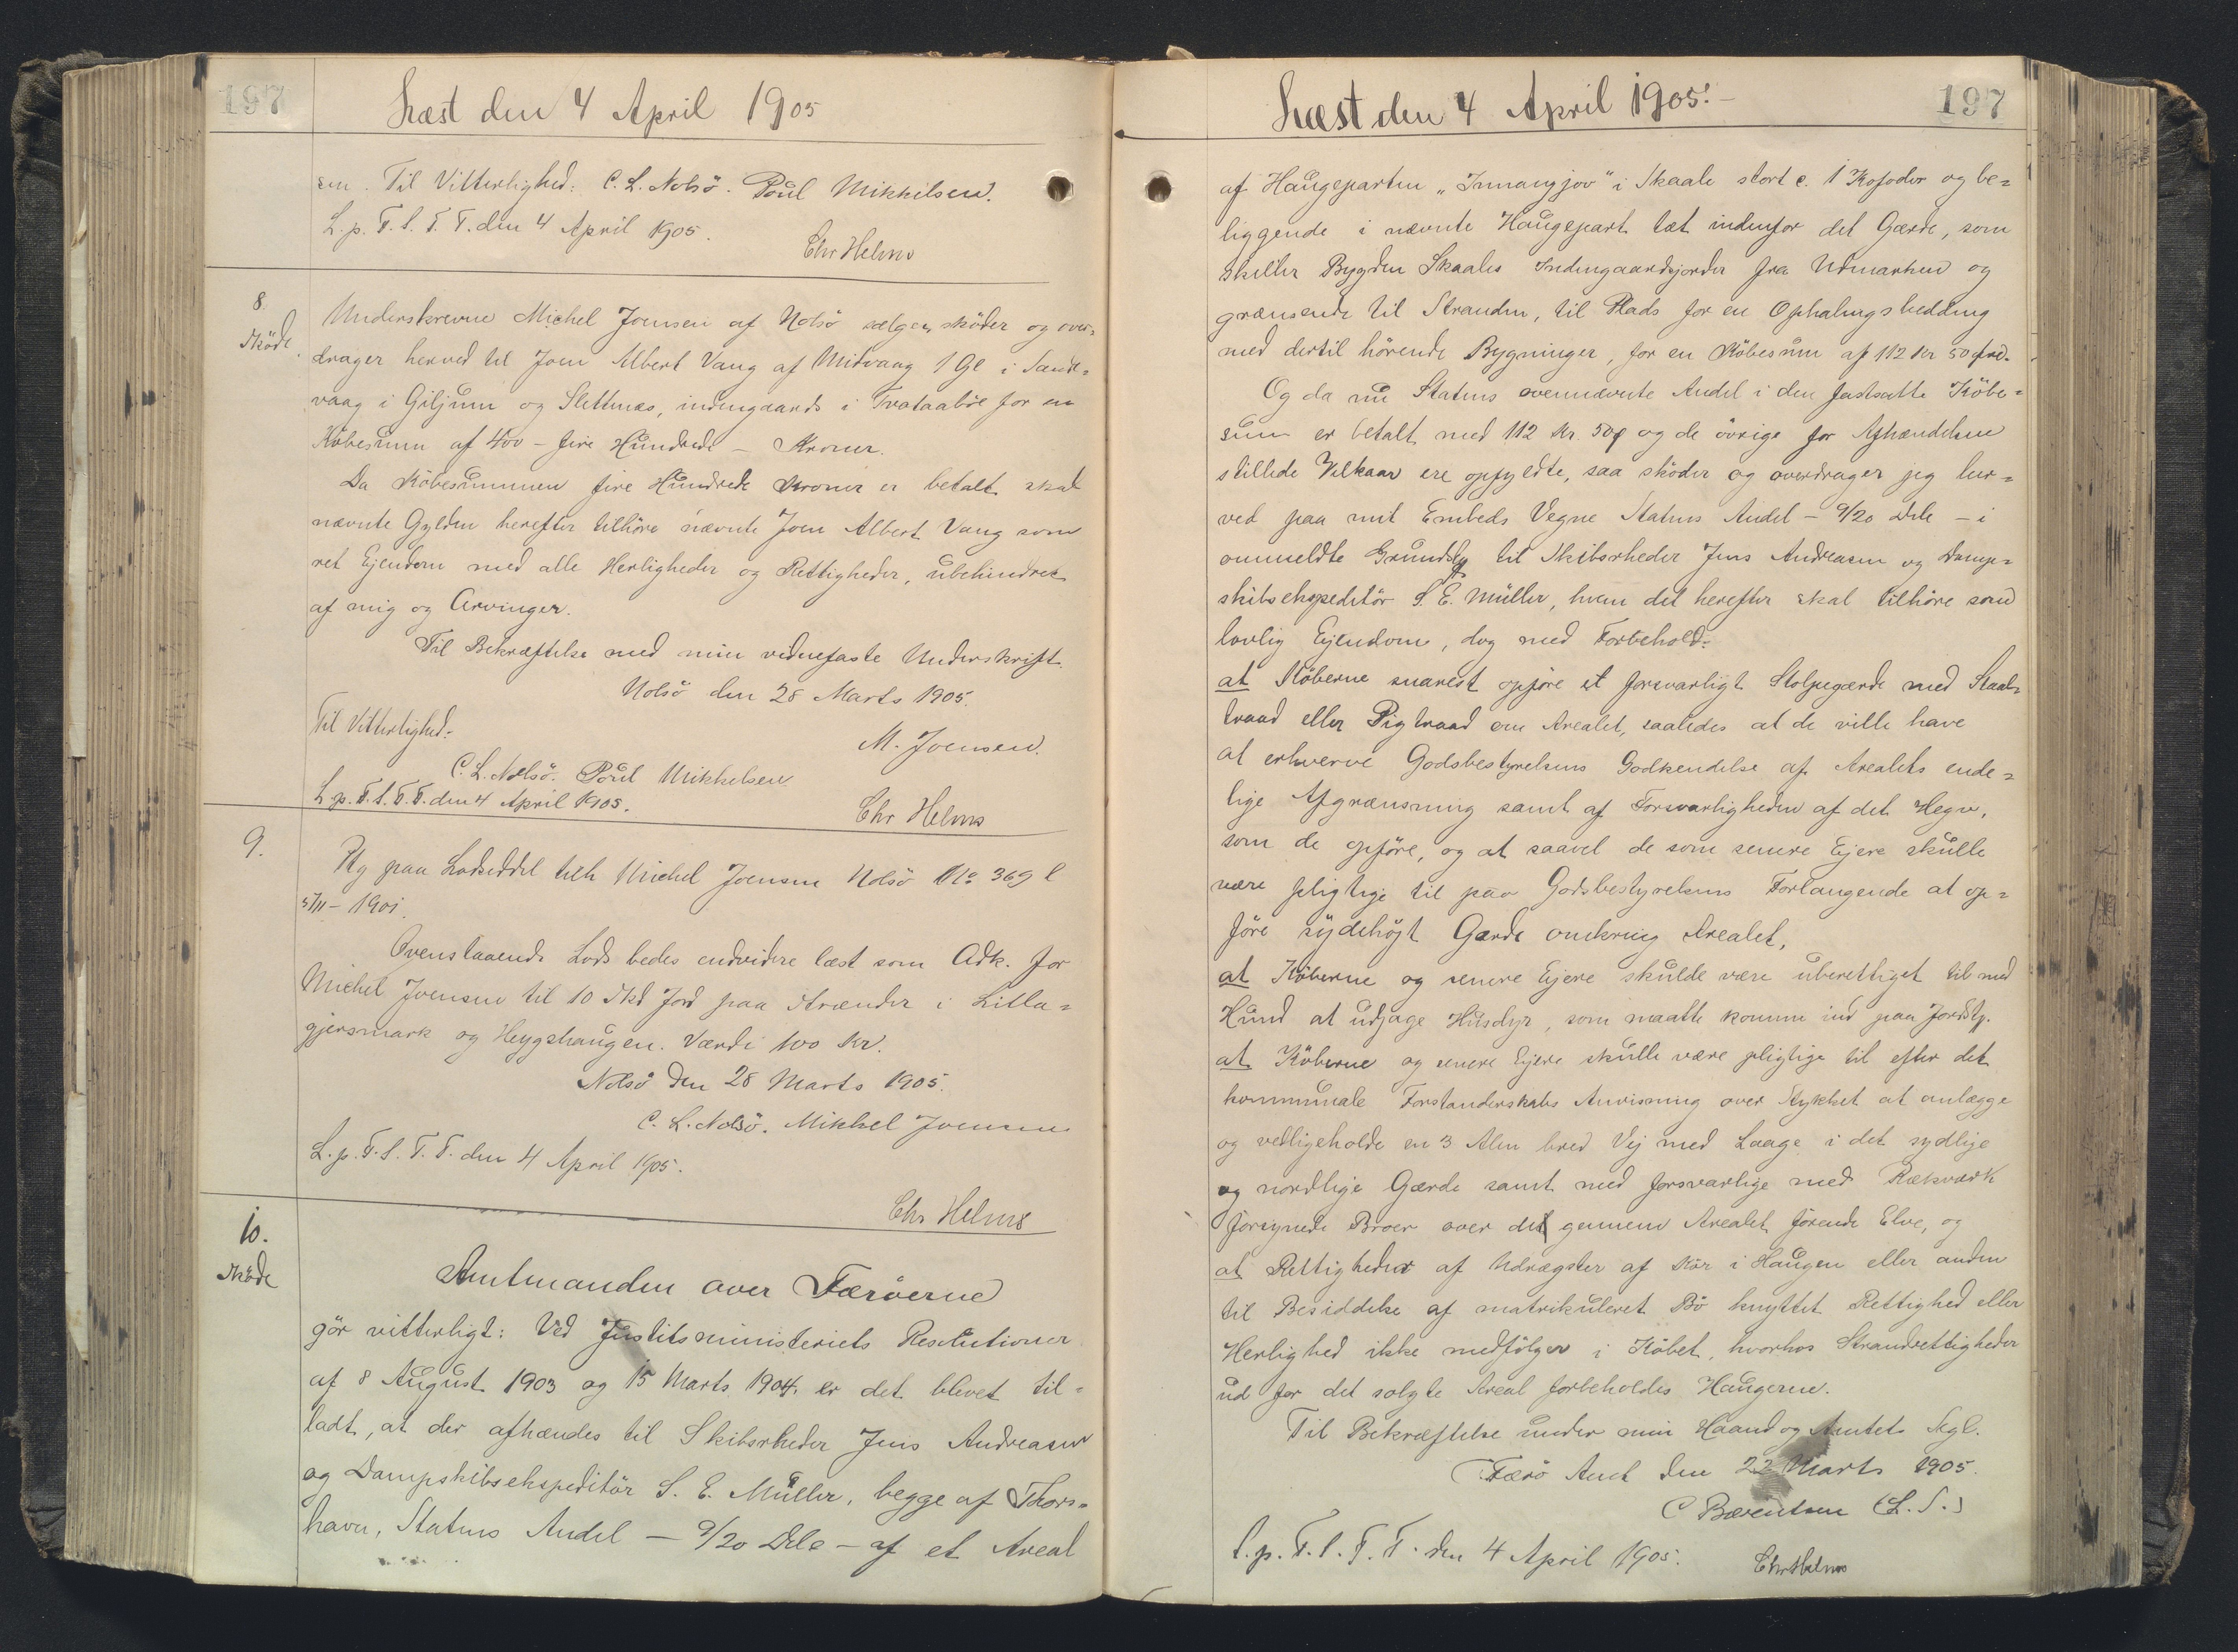 197
Læst den 4 April 1905
sen. Til Vitterlighed: C. L. Nolsö. Poul Mikkelsen.
L. p. F. S. T. T. den 4 April 1905.
Chr Helms
8.
Sköde.
Underskrevne Michel Joensen af Nolsö sælger, sköder og over-
drager herved til Joen Albert Vang af Midvaag 1 Gl i Sand-
vaag i Giljum og Slettnæs, indengaards i Trataaböe for en
Köbesum af 400 - fire Hundrede - Kroner.
Da Köbesummen fire Hundrede Kroner er betalt skal
nævnte Gylden herefter tilhöre nævnte Joen Albert Vang som
ret Ejendom med alle Herligheder og Rettigheder, ubehindret
af mig og Arvinger.
Til Bekræftelse med min vednefaste Underskrift.
Nolsö den 28 Marts 1905.
Til Vitterlighed:
M. Joensen.
C. L. Nolsö. Poul Mikkelsen
L. p. F. S. T. T. den 4 April 1905.
Chr Helms
9.
Ptg paa Lodseddel tilh Michel Joensen Nolsö No 369 l
5/11 - 1901.
Ovenstaaende Lods bedes endvidere læst som Adk. for
Michel Joensen til 10 Skd Jord paa Strænder i Litla-
gjersmark og Heygshaugen. Værdi 100 Kr.
Nolsö den 28 Marts 1905.
C. L. Nolsö. Mikkel Joensen
L. p. F. S. T. T. den 4 April 1905.
Chr Helms
10.
Sköde
Amtmanden over Færöerne
gör vitterligt: Ved Justitsministeriets Resolutioner
af 8 August 1903 og 15 Marts 1904 er det blevet til-
ladt, at der afhændes til Skibsrheder Jens Andreasen
og Dampskibsekspeditör S. E. Müller, begge af Thors-
havn, Statens Andel - 9/20 Dele - af et Areal
Læst den 4 April 1905. -
197
af Haugeparten "Innangjov" i Skaale stort c. 1 Kofoder og be-
liggende i nævnte Haugepart tæt indenfor det Gærde, som
skiller Bygden Skaales Indengaardsjorder fra Udmarken og
grænsende til Stranden, til Plads for en Ophalingsbedding
med dertil hörende Bygninger, for en Köbesum af 112 Kr 50 Øre.
Og da nu Statens ovennævnte Andel i den fastsatte Köbe-
sum er betalt med 112 Kr. 50 Ø og de övrige for Afhændelsen
stillede Vilkaar ere opfyldte, saa sköder og overdrager jeg her-
ved paa mit Embeds Vegne Statens Andel - 9/20 Dele - i
ommeldte Grundstk til Skibsrheder Jens Andreasen og Damp-
skibsekspeditör S. E. Müller, hvem det herefter skal tilhöre som
lovlig Ejendom, dog med Forbehold:
at Köberne snarest opföre et forsvarligt Stolpegærde med Staal-
traad eller Pigtraad om Arealet, saaledes at de ville have
at erhverve Godsbestyrelsens Godkendelse af Arealets ende-
lige Afgrænsning samt af Forsvarligheden af det Hegn,
som de opföre, og at saavel de som senere Ejere skulle
være pligtige til paa Godsbestyrelsens Forlangende at op-
före sydehöjt Gærde omkring Arealet,
at Köberne og senere Ejere skulde være uberettiget til med
Hund at udjage Husdyr, som maatte komme ind paa Jordstk.
at Köberne og senere Ejere skulle være pligtige til efter det
kommunale Forstanderskabs Anvisning over Stykket at anlægge
og vedligeholde en 3 Alen bred Vej med Laage i det sydlige
og nordlige Gærde samt med forsvarlige med Rækværk
forsynede Broer over det gennem Arealet förende Elve, og
at Rettigheder af Udrægster af Kör i Haugen eller anden
til Besiddelse af matrikuleret Bö knyttet Rettighed eller
Herlighed ikke medfölger i Köbet, hvorhos Strandrettigheder
ud for det solgte Areal forbeholdes Haugerne.
Til Bekræftelse under min Haand og Amtets Segl.
Færö Amt den 22 Marts 1905.
C Bærentsen (L. S.)
L. p. F. S. T. T. den 4 April 1905.
Chr Helms